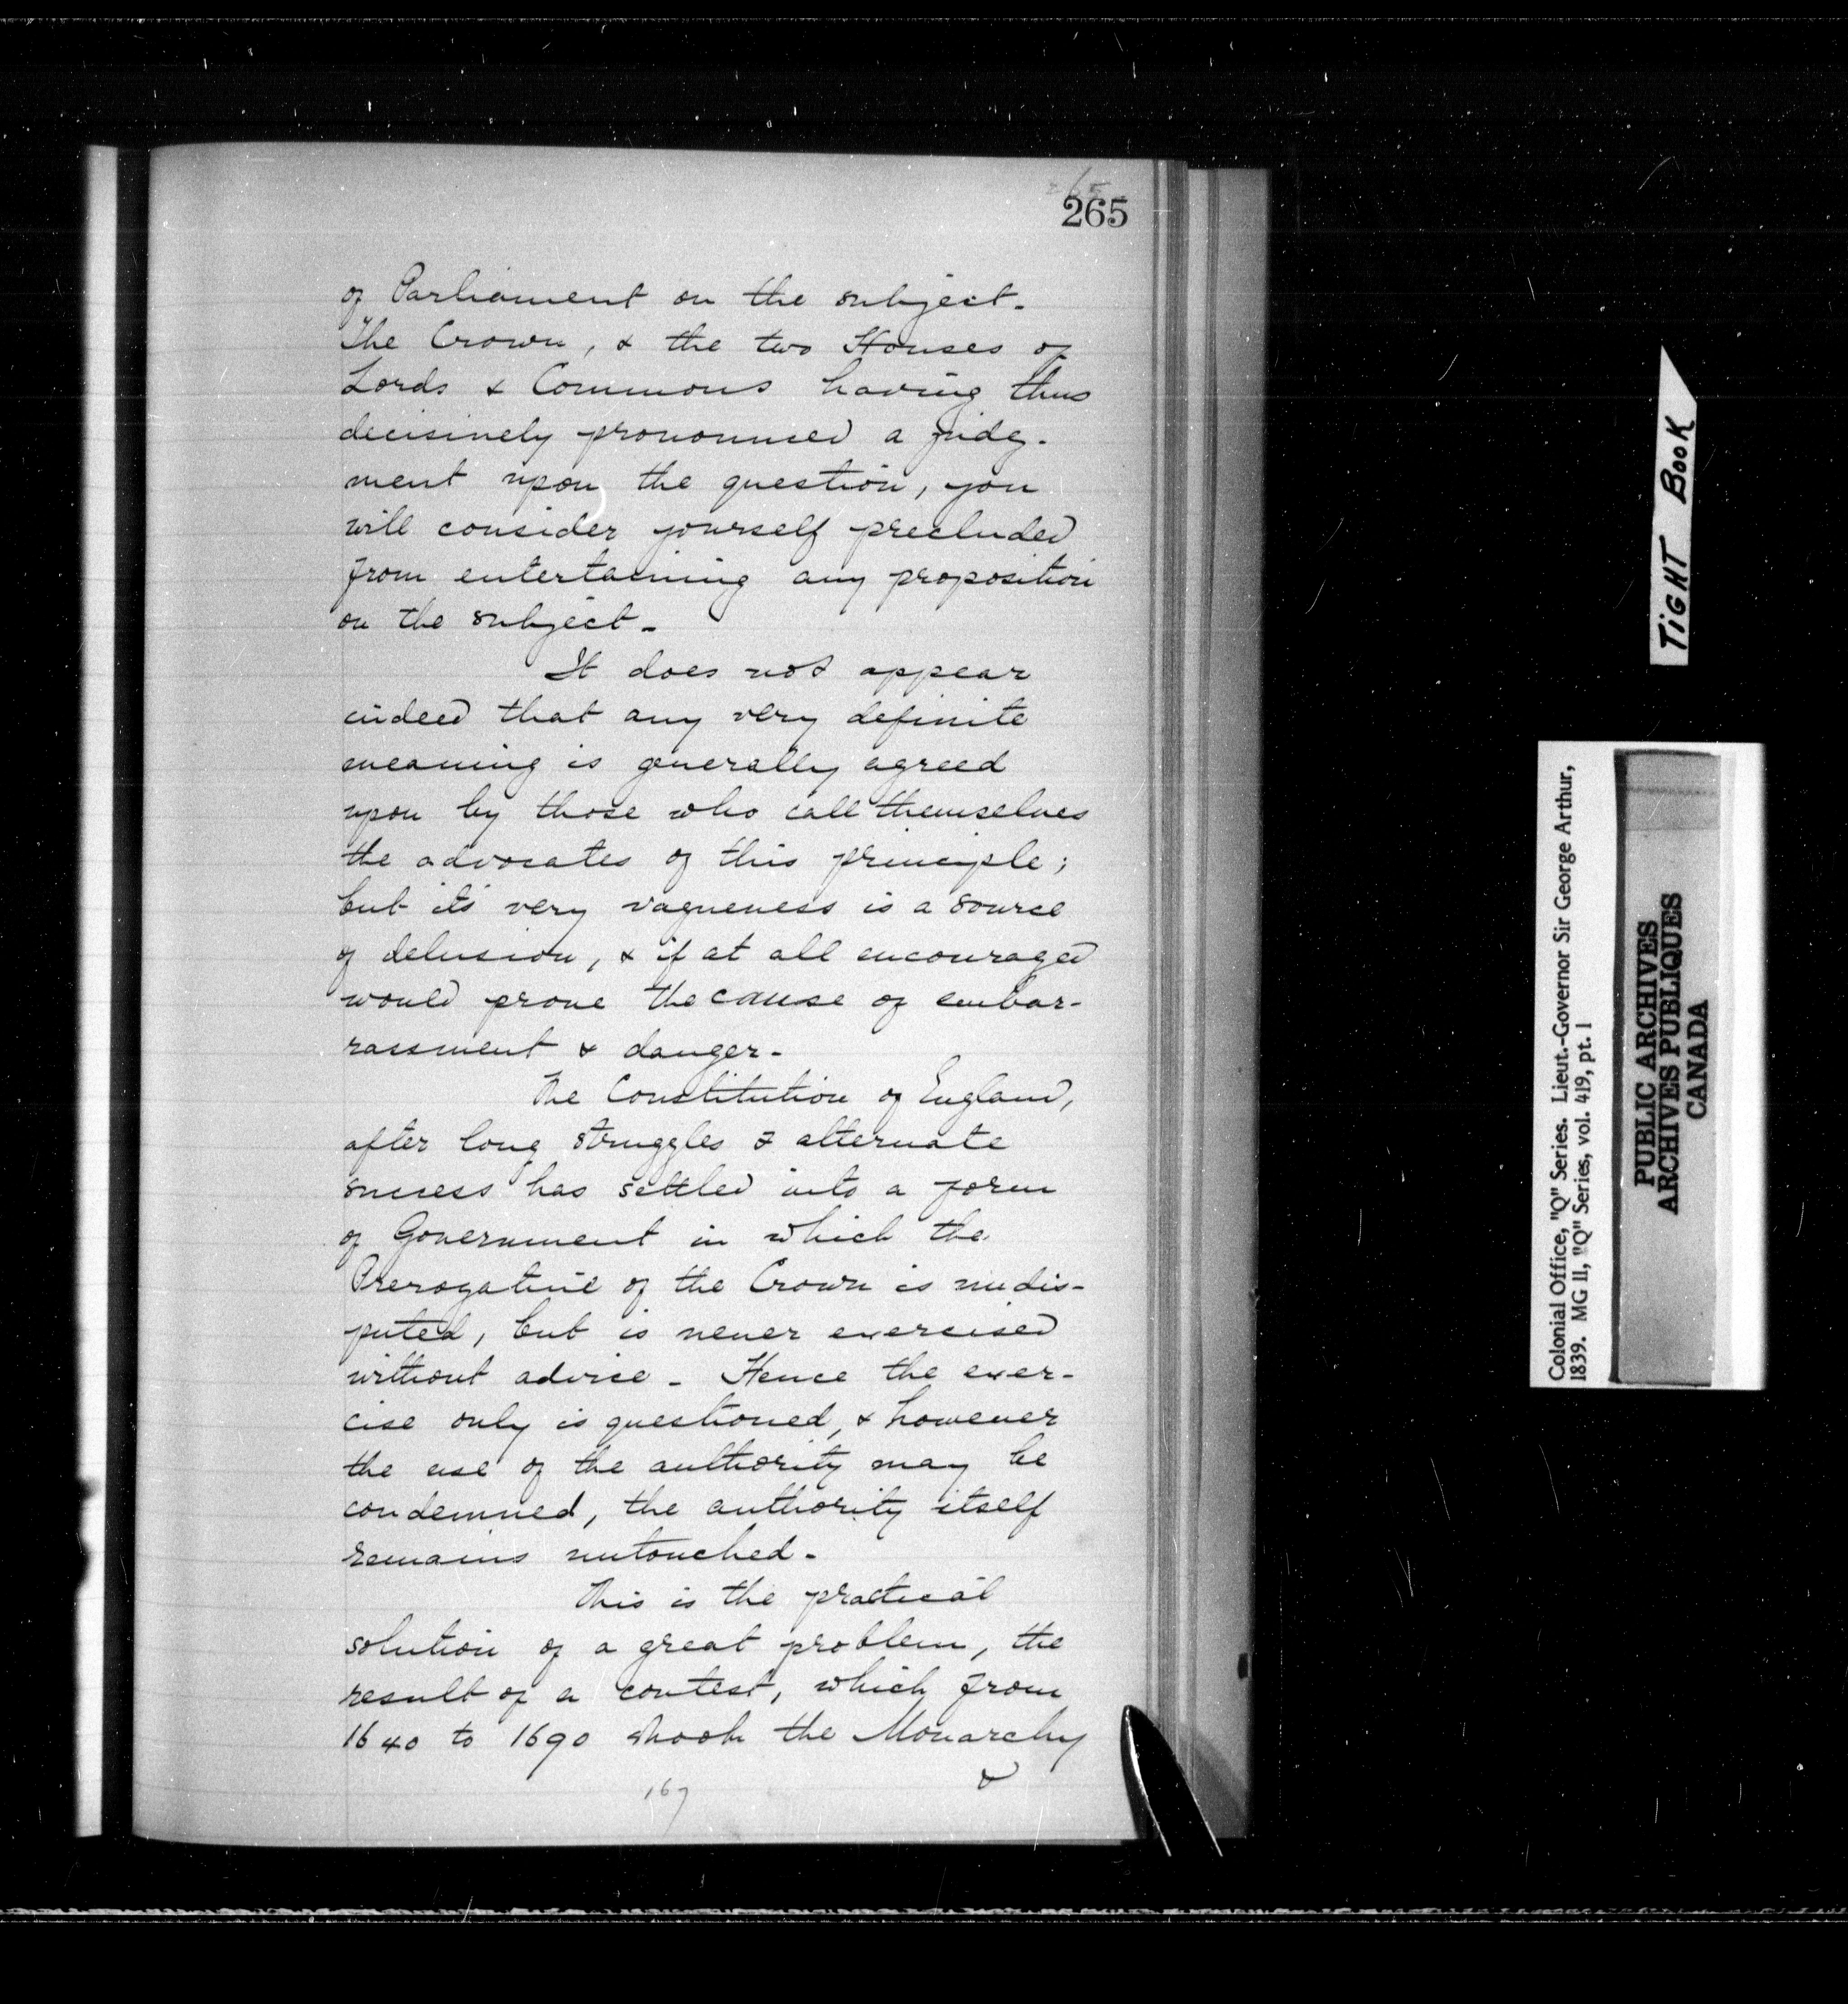 265
265
of Parliament on the subject.
The Crown, & the two Houses of
Lords & Commons having thus
decisively pronounced a judg-
ment upon the question, you
will consider yourself precluded
from entertaining any proposition
on the subject.
It does not appear
indeed that any very definite
meaning is generally agreed
upon by those who call themselves
the advocates of this principle;
but its very vagueness is a source
of delusion, & if at all encouraged
would prove the cause of embar-
rassment & danger.
The Constitution of England,
after long struggles & alternate
success has settled into a form
of Government in which the
Prerogative of the Crown is undis-
puted, but is never exercised
without advice. Hence the exer-
cise only is questioned, & however
the use of the authority may be
condemned, the authority itself
remains untouched.
This is the practical
solution of a great problem, the
result of a contest, which from
1640 to 1690 shook the Monarchy
&
167
TIGHT BOOK
Colonial Office, "Q" Series. Lieut.-Governor Sir George Arthur,
1839. MG 11, "Q" Series, vol. 419, pt. 1
PUBLIC ARCHIVES
ARCHIVES PUBLIQUES
CANADA